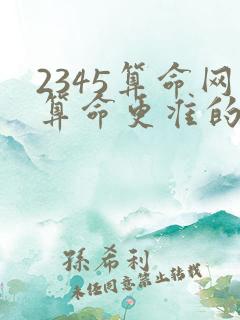 2345算命网
算命更准的
孫希利
未经同意禁止转载